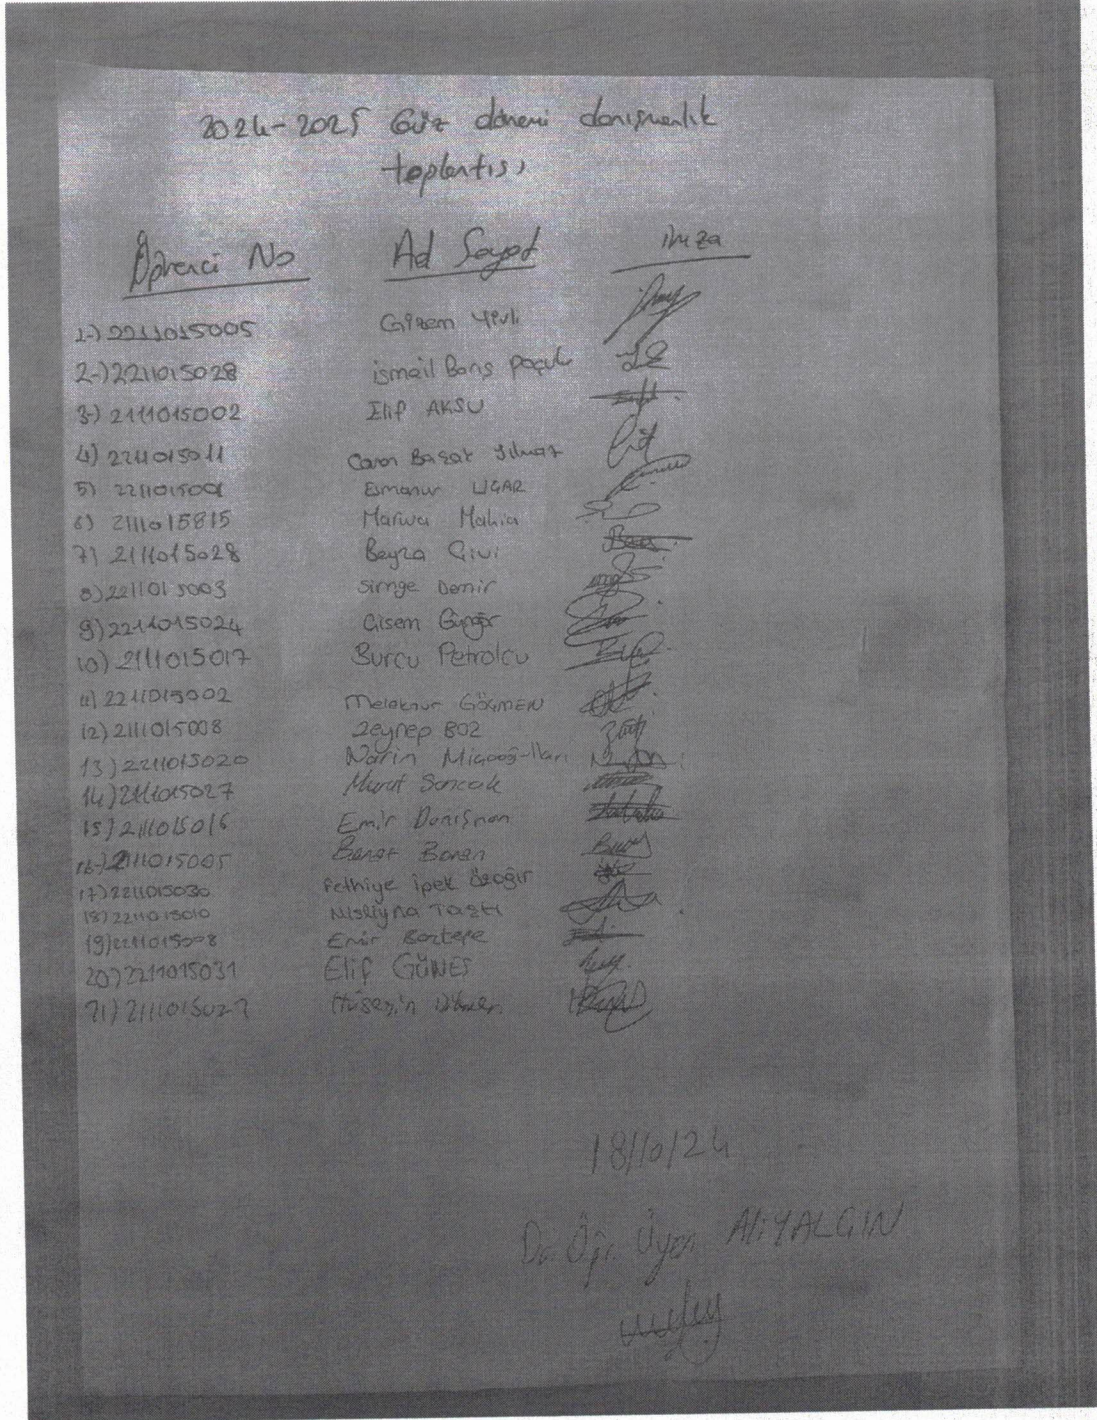 2024-2025 Güz dönemi danışmanlık
toplantısı
Öğrenci No Ad Soyad imza
1-) 2211015005 Gizem
2-) 2211015028 ismail Barış
3-) 2111015002 Elif AKSU
4) 2211015011 Caren Basat Yılmaz
5) Esmanur UÇAR
6) 2111015815 Marwa Mahia
7) 2111015028 Beyza Çivi
8) 2211015003 Simge Demir
9) 2211015024 Gisem Güngör
10) 2111015017 Burcu Petrolcu
11) 2211015002 Meleknur GÖÇMEN
12) 2111015008 Zeynep BOZ
13) 2211015020 Narin
14) 2111015027 Murat
15) 2111015016 Emir Danişman
16-) 2111015005 Boran
17) 2211015030 Fethiye ipek Özağır
18) 2211015010
19) 2211015008 Emir Boztepe
20) 2211015031 Elif GÜNEŞ
21) Hüseyin
18/10/24
Dr. Öğr. Üyesi ALİ YALÇIN